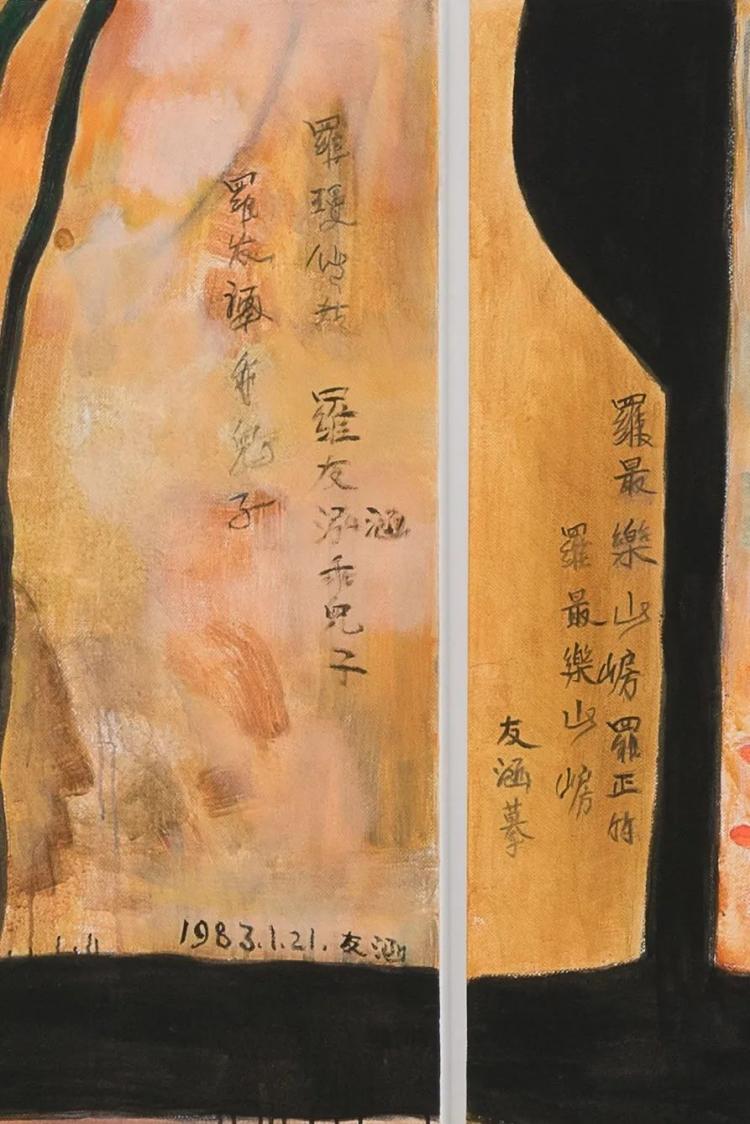 羅最樂山羅正竹
羅最樂山
友涵摹
羅瓊
羅友泓乖兒子
涵
羅友乖兒子
1983.1.21. 友涵